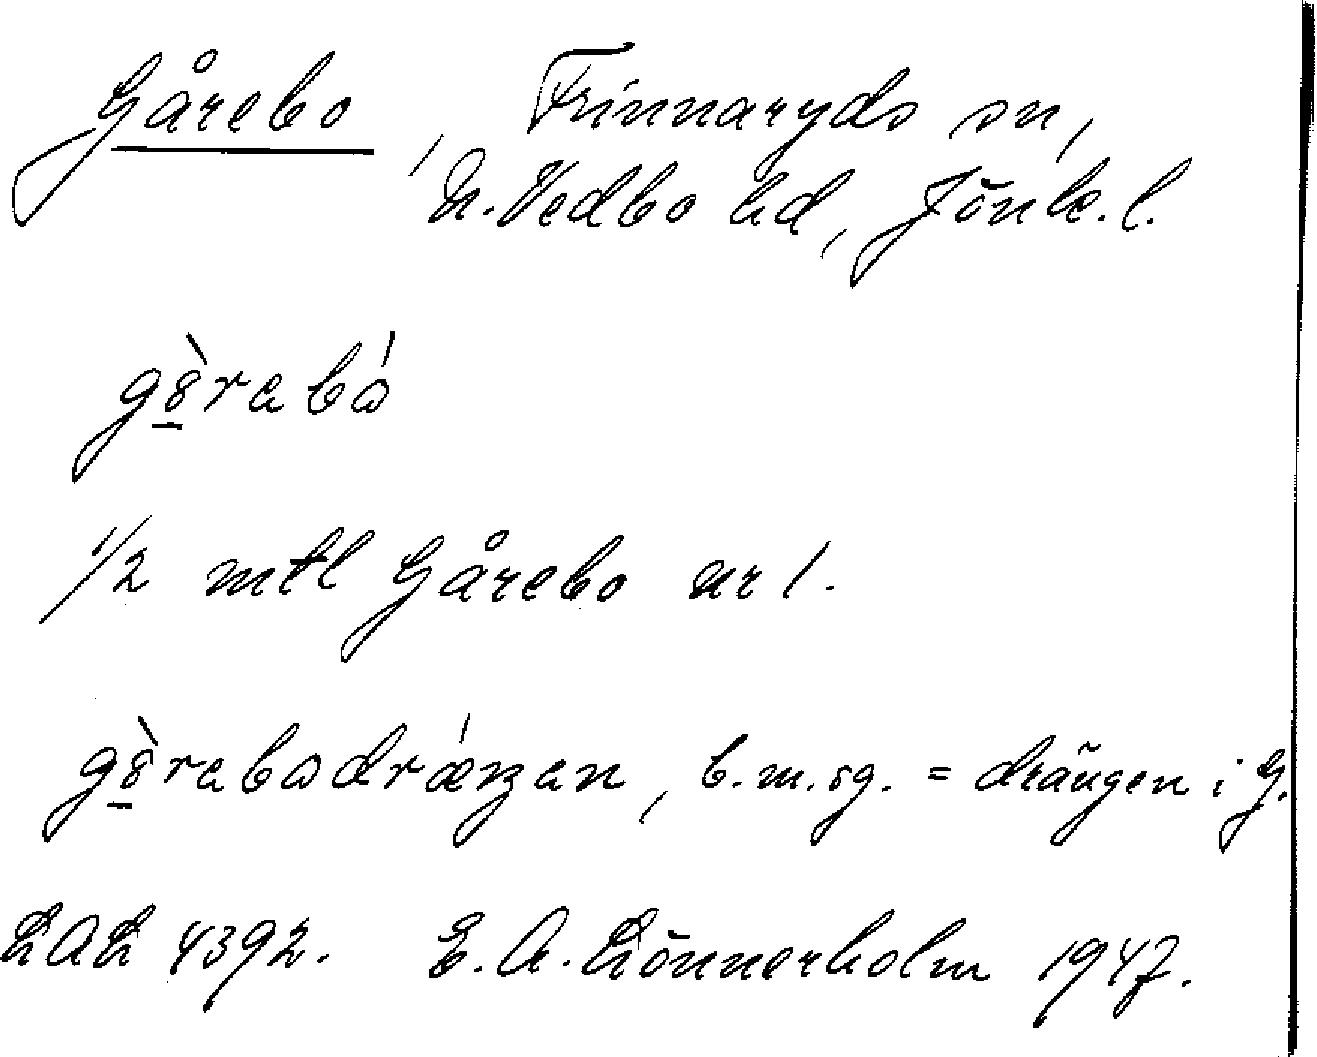 Gårebo, Frinnaryds sn,
N. Vedbo hd, Jönk. l.
gòrabó
1/2 mtl Gårebo nr 1.
b. m. sg. = drängen i G.
LAL 4392. E. A. Lönnerholm 1947.